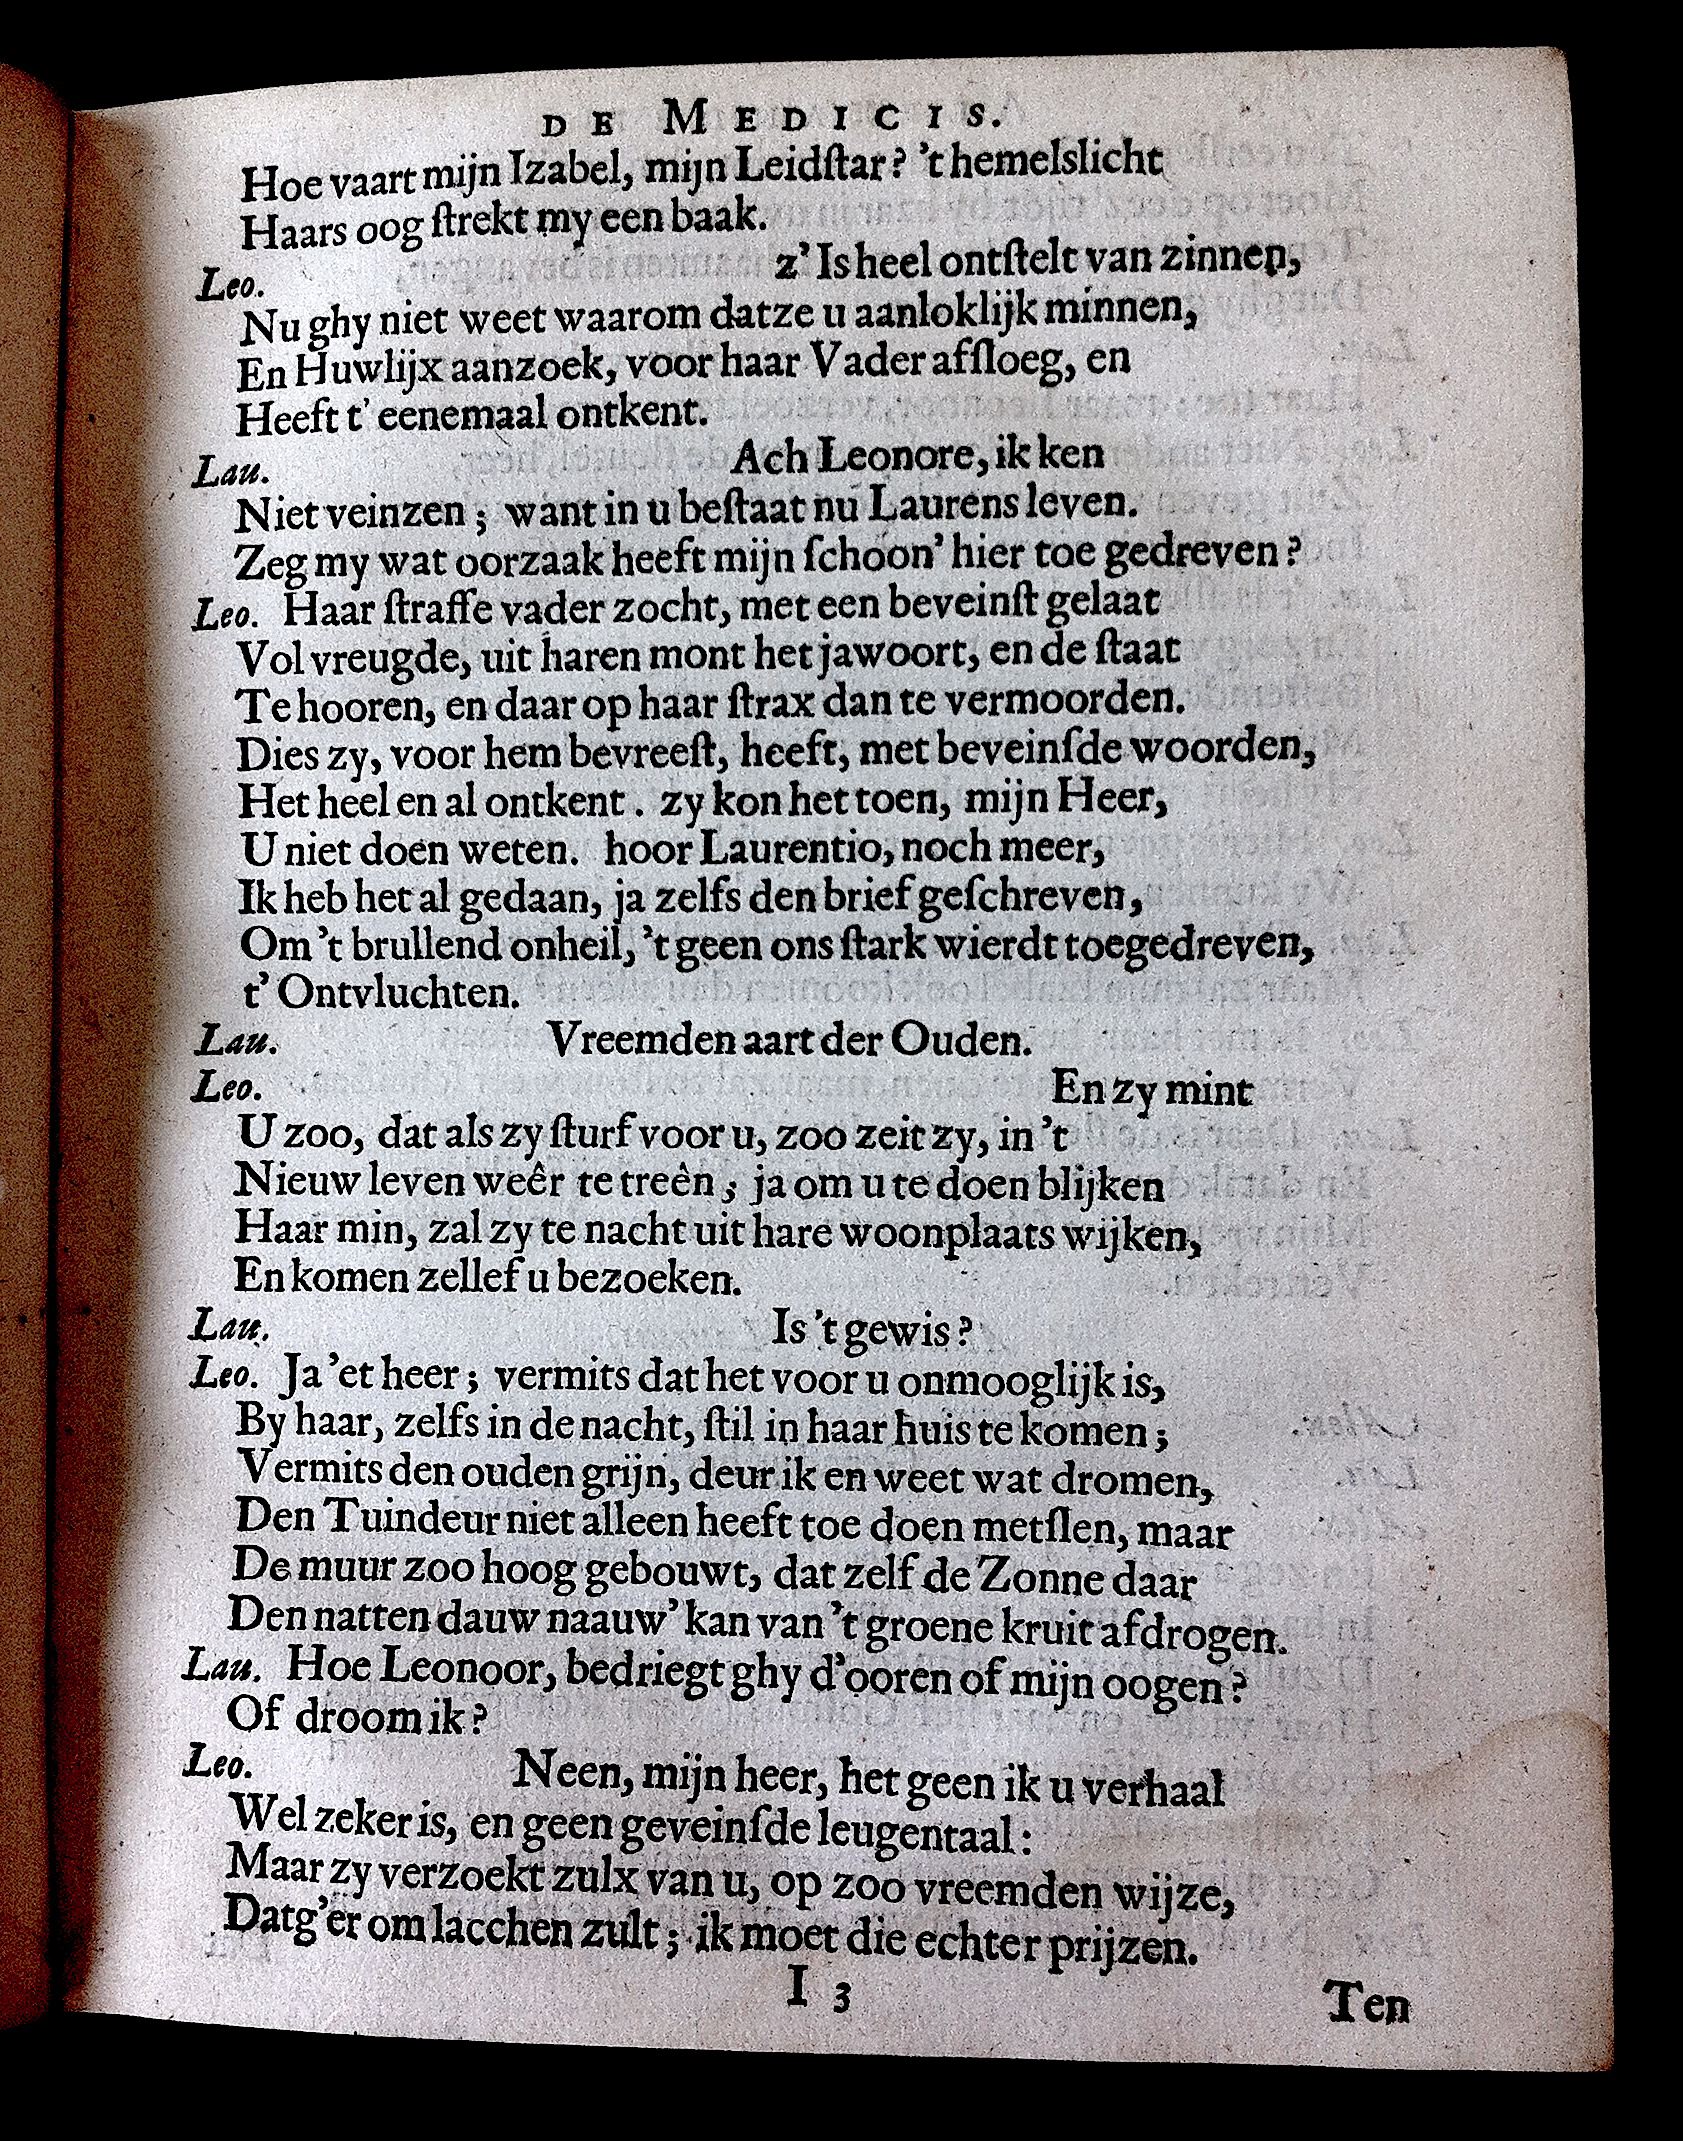 DE MEDICIS.
Hoe vaart mijn Izabel, mijn Leidſtar? 't hemelslicht
Haars oog ſtrekt my een baak.
Leo. z' Is heel ontſtelt van zinnen,
Nu ghy niet weet waarom datze u aanloklijk minnen,
En Huwlijx aanzoek, voor haar Vader afſloeg, en
Heeft t' eenemaal ontkent.
Lau. Ach Leonore, ik ken
Niet veinzen; want in u beſtaat nu Laurens leven.
Zeg my wat oorzaak heeft mijn ſchoon' hier toe gedreven?
Leo. Haar ſtraffe vader zocht, met een beveinſt gelaat
Vol vreugde, uit haren mont het jawoort, en de ſtaat
Te hooren, en daar op haar ſtrax dan te vermoorden.
Dies zy, voor hem bevreeſt, heeft, met beveinſde woorden,
Het heel en al ontkent. zy kon het toen, mijn Heer,
U niet doen weten. hoor Laurentio, noch meer,
Ik heb het al gedaan, ja zelfs den brief geſchreven,
Om 't brullend onheil, 't geen ons ſtark wierdt toegedreven,
t' Ontvluchten.
Lau. Vreemden aart der Ouden.
Leo. En zy mint
U zoo, dat als zy ſturf voor u, zoo zeit zy, in 't
Nieuw leven weêr te treên; ja om u te doen blijken
Haar min, zal zy te nacht uit hare woonplaats wijken,
En komen zellef u bezoeken.
Lau. Is 't gewis?
Leo. Ja 'et heer; vermits dat het voor u onmooglijk is,
By haar, zelfs in de nacht, ſtil in haar huis te komen;
Vermits den ouden grijn, deur ik en weet wat dromen,
Den Tuindeur niet alleen heeft toe doen metſlen, maar
De muur zoo hoog gebouwt, dat zelf de Zonne daar
Den natten dauw naauw' kan van 't groene kruit afdrogen.
Lau. Hoe Leonoor, bedriegt ghy d'ooren of mijn oogen?
Of droom ik?
Leo. Neen, mijn heer, het geen ik u verhaal
Wel zeker is, en geen geveinſde leugentaal:
Maar zy verzoekt zulx van u, op zoo vreemden wijze,
Datg'er om lacchen zult; ik moet die echter prijzen.
I 3 Ten